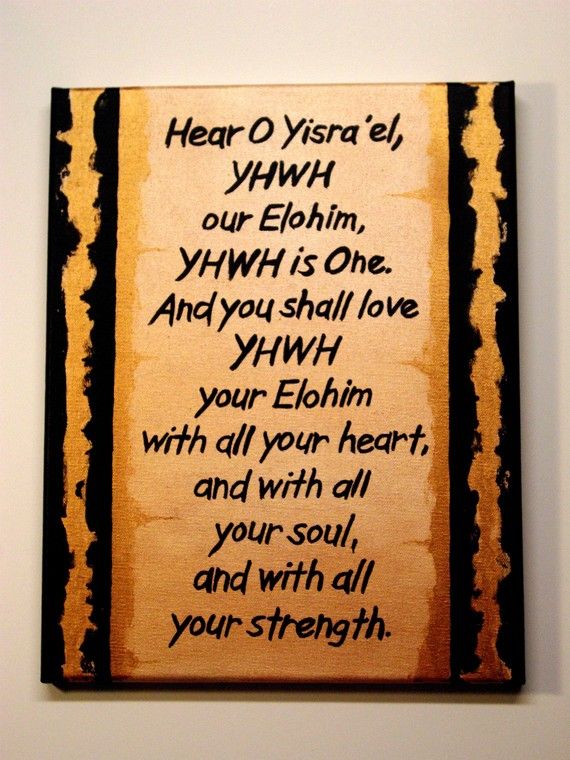 Hear O Yisra'el,
YHWH
our Elohim,
YHWH is One.
And you shall love
YHWH
your Elohim
with all your heart,
and with all
your soul,
and with all
your strength.